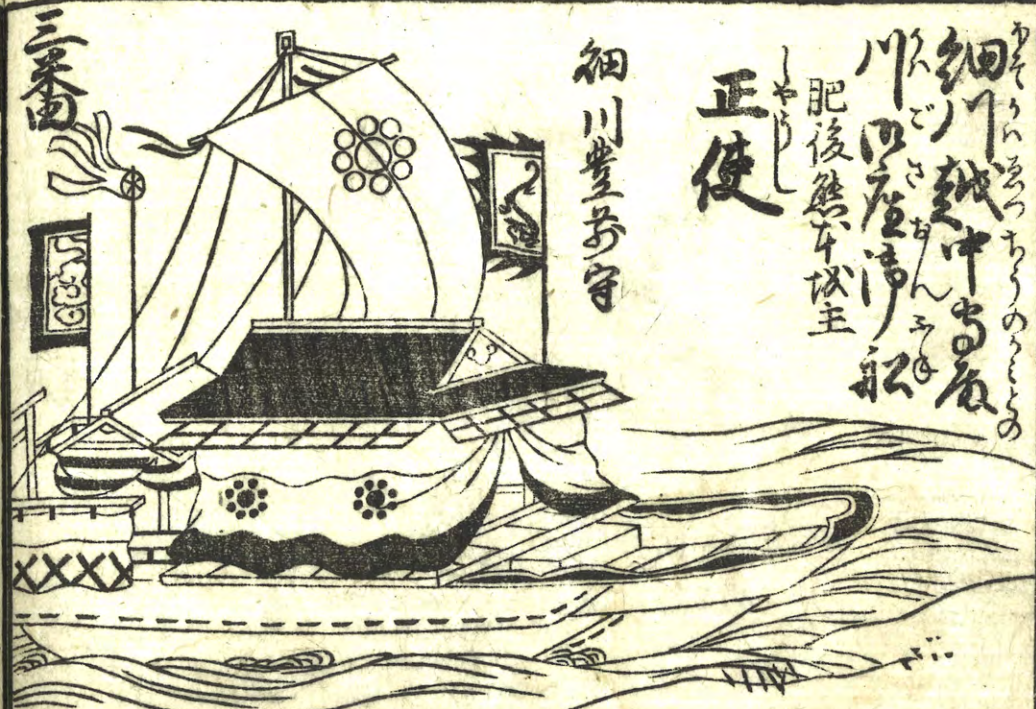 細川越中守殿
ほそかハゑつちうのかミとの
川御座御船
かハござおんふね
肥後熊本城主
正使
しやうし
細川豊前守
三番